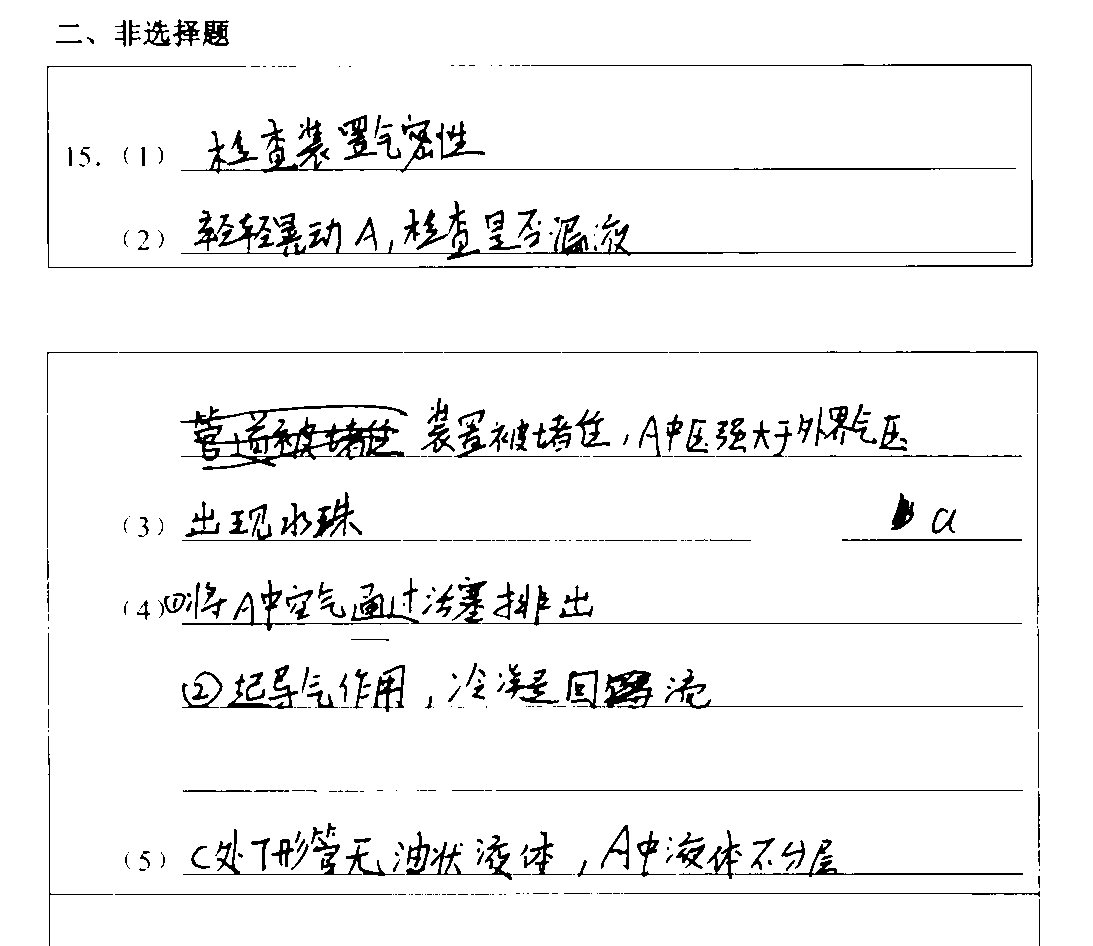 二、非选择题
15.（1） 检查装置气密性
（2） 轻轻晃动A，检查是否漏液
管道被堵住 装置被堵住，A中压强大于外界气压
（3） 出现水珠 a
（4）①将A中空气通过活塞排出
②起导气作用，冷凝回流
（5） C处T形管无油状液体，A中液体不分层